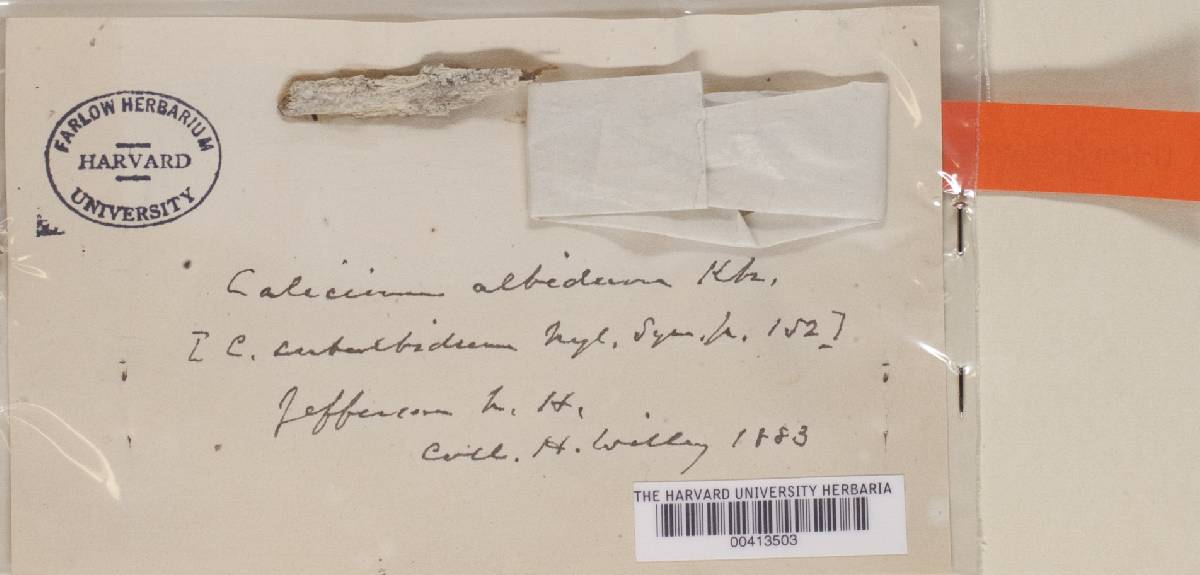 FARLOW HERBARIUM
HARVARD
UNIVERSITY
Calicium albidum Kbr.
[C. subalbidum Nyl. Syn. p. 152]
Jefferson N. H.
Coll. H. Willey 1883
THE HARVARD UNIVERSITY HERBARIA
00413503